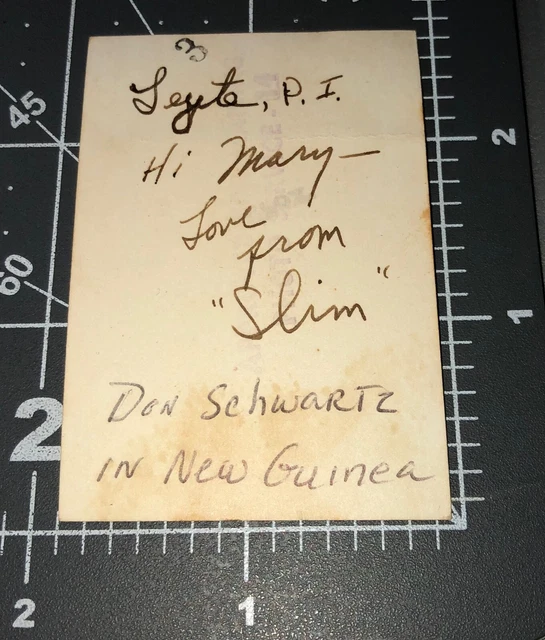 3
Leyte, P.I.
Hi Mary—
Love
from
"Slim"
Don Schwartz
in New Guinea
45
60
2
2
1
2
1